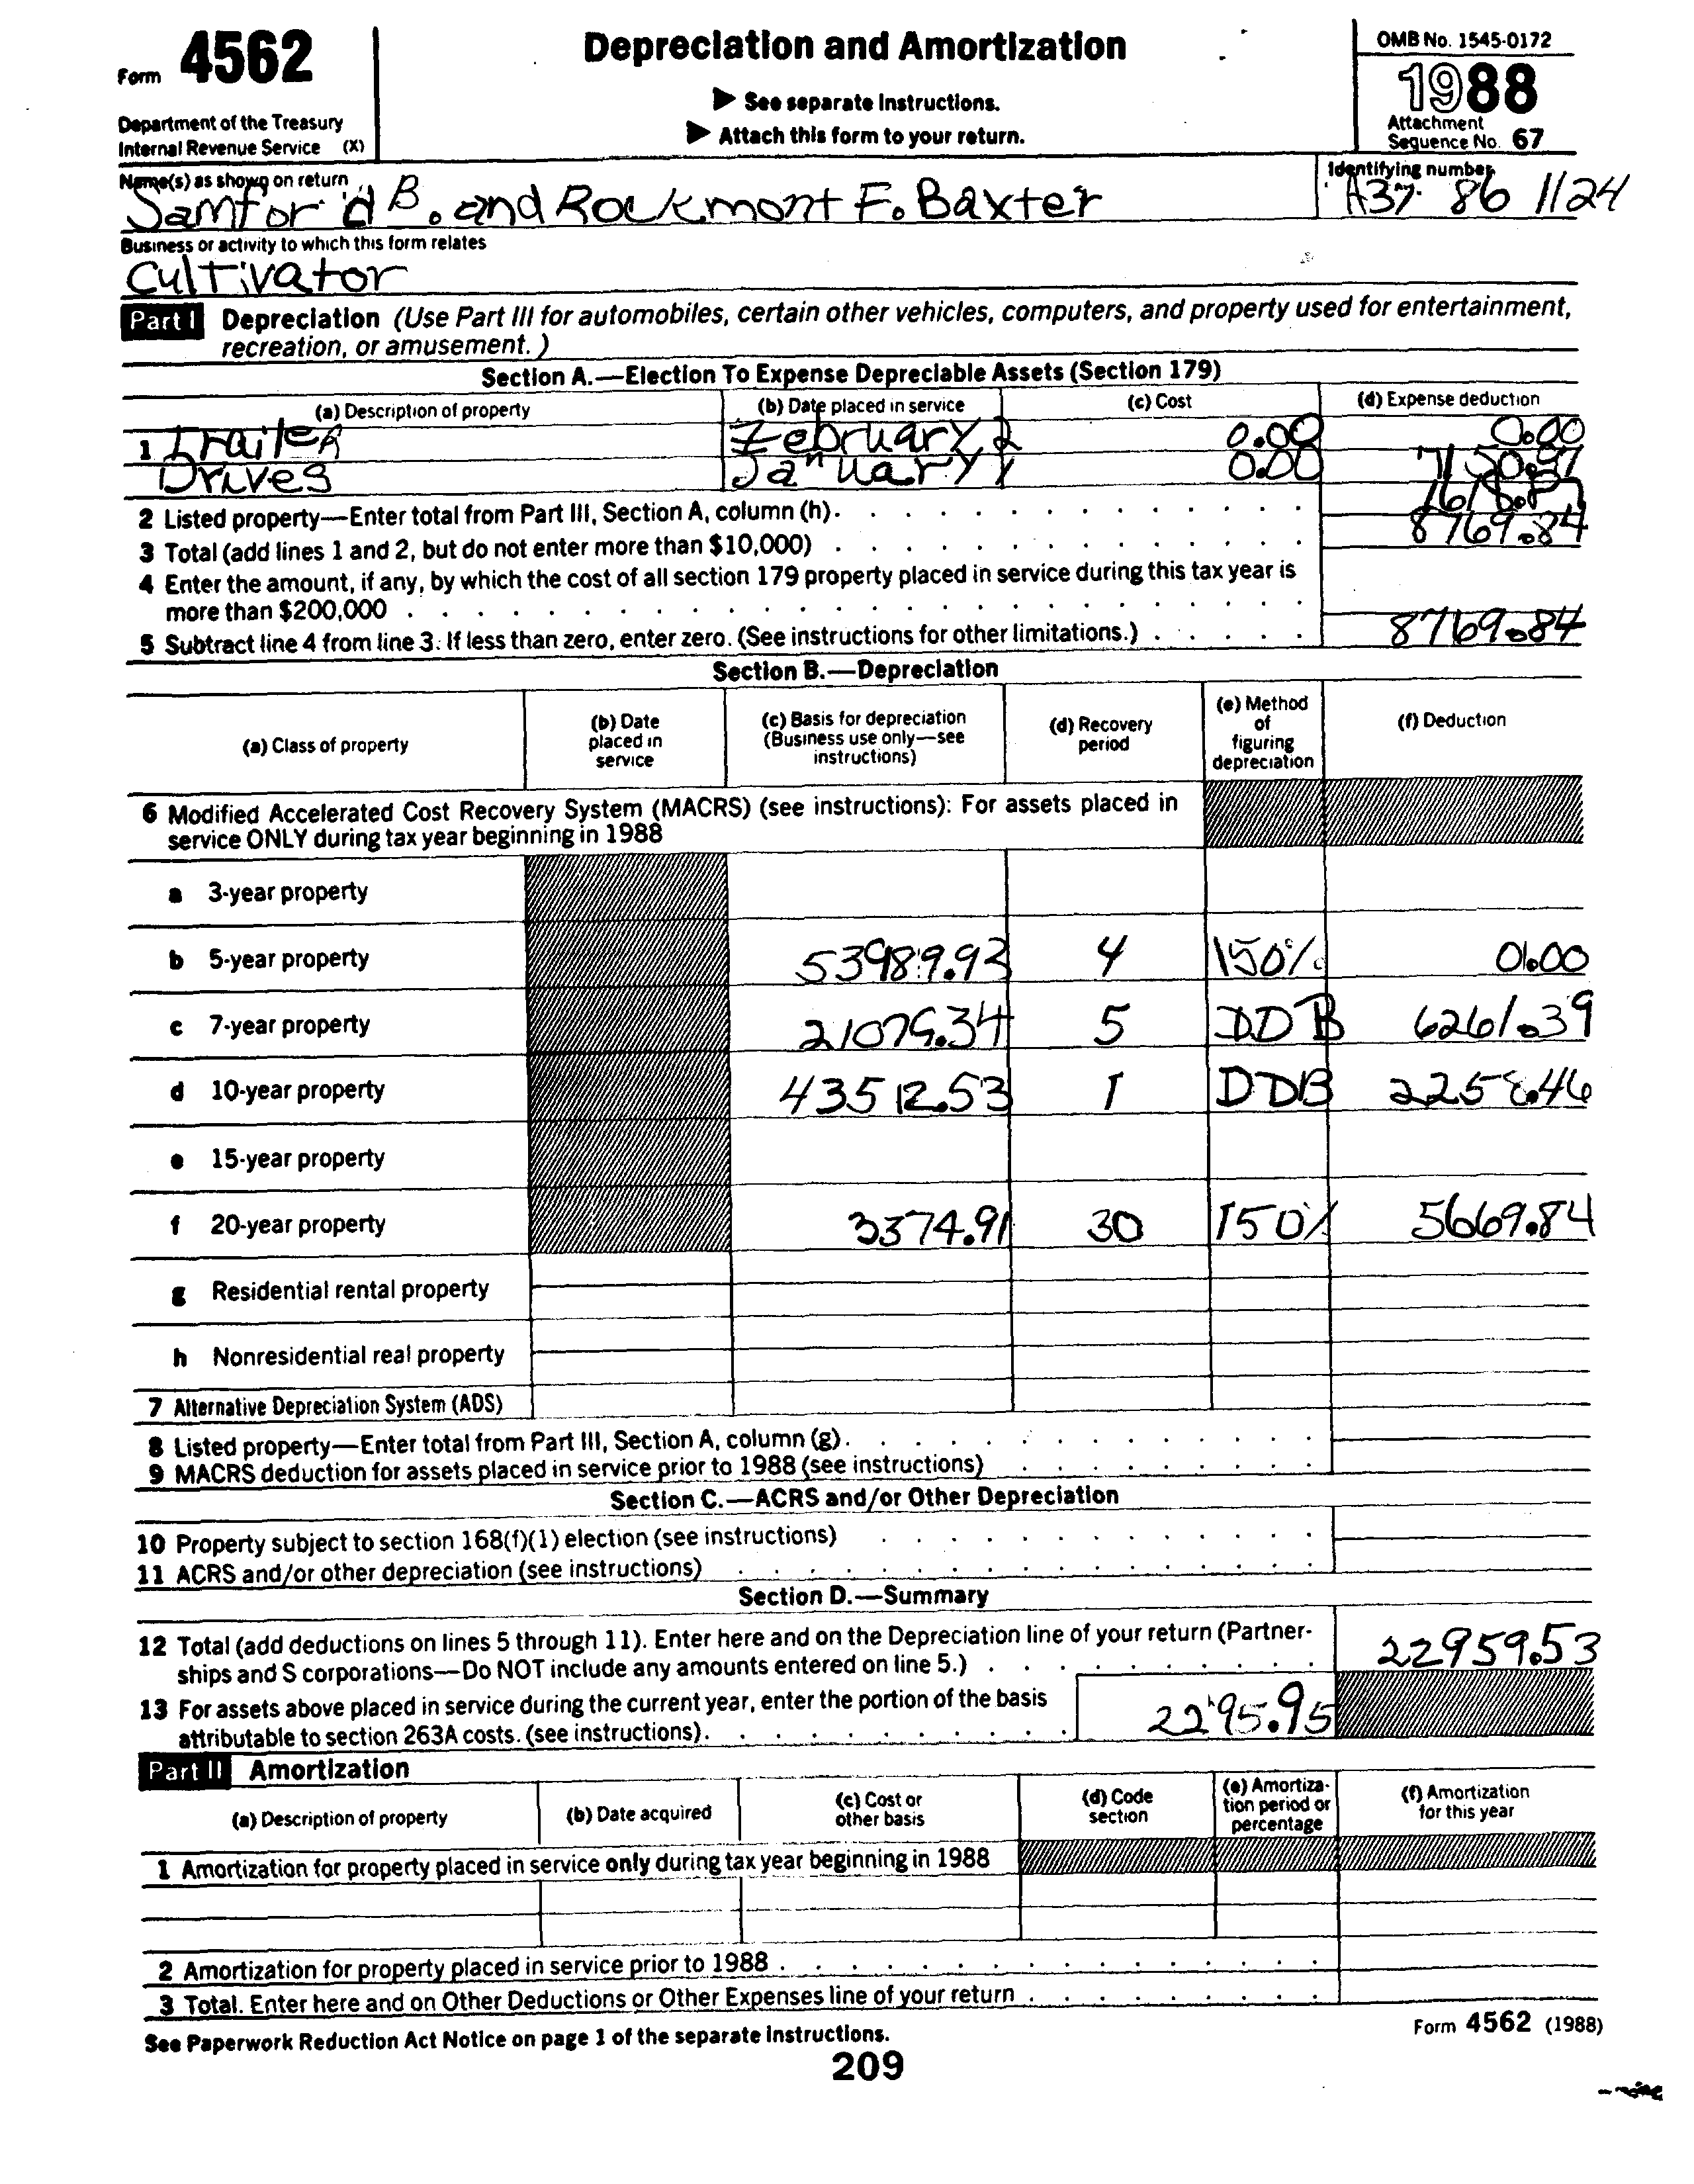 Form 4562
Depreciation and Amortization
OMB No. 1545-0172
1988
▶ See separate instructions.
▶ Attach this form to your return.
Department of the Treasury
Internal Revenue Service (X)
Attachment
Sequence No. 67
Name(s) as shown on return
Identifying number
Samford B. and Rockmont F. Baxter
A37 86 1124
Business or activity to which this form relates
Cultivator
Part I Depreciation (Use Part III for automobiles, certain other vehicles, computers, and property used for entertainment,
recreation, or amusement.)
Section A.—Election To Expense Depreciable Assets (Section 179)
(a) Description of property (b) Date placed in service (c) Cost (d) Expense deduction
1 Trailer February 2 0.00 0.00
Drives January 1 0.00 7150.97
2 Listed property—Enter total from Part III, Section A, column (h). 1618.87
3 Total (add lines 1 and 2, but do not enter more than $10,000) 8769.84
4 Enter the amount, if any, by which the cost of all section 179 property placed in service during this tax year is
more than $200,000
5 Subtract line 4 from line 3. If less than zero, enter zero. (See instructions for other limitations.) 8769.84
Section B.—Depreciation
(a) Class of property (b) Date placed in service (c) Basis for depreciation (Business use only—see instructions) (d) Recovery period (e) Method of figuring depreciation (f) Deduction
6 Modified Accelerated Cost Recovery System (MACRS) (see instructions): For assets placed in
service ONLY during tax year beginning in 1988
a 3-year property
b 5-year property 53989.93 4 150% 0.00
c 7-year property 21079.34 5 DDB 6261.39
d 10-year property 43512.53 1 DDB 2258.46
e 15-year property
f 20-year property 3374.91 30 150% 5669.84
g Residential rental property
h Nonresidential real property
7 Alternative Depreciation System (ADS)
8 Listed property—Enter total from Part III, Section A, column (g).
9 MACRS deduction for assets placed in service prior to 1988 (see instructions)
Section C.—ACRS and/or Other Depreciation
10 Property subject to section 168(f)(1) election (see instructions)
11 ACRS and/or other depreciation (see instructions)
Section D.—Summary
12 Total (add deductions on lines 5 through 11). Enter here and on the Depreciation line of your return (Partner-
ships and S corporations—Do NOT include any amounts entered on line 5.) 22959.53
13 For assets above placed in service during the current year, enter the portion of the basis
attributable to section 263A costs. (see instructions). 2295.95
Part II Amortization
(a) Description of property (b) Date acquired (c) Cost or other basis (d) Code section (e) Amortiza-tion period or percentage (f) Amortization for this year
1 Amortization for property placed in service only during tax year beginning in 1988
2 Amortization for property placed in service prior to 1988
3 Total. Enter here and on Other Deductions or Other Expenses line of your return
See Paperwork Reduction Act Notice on page 1 of the separate instructions.
Form 4562 (1988)
209